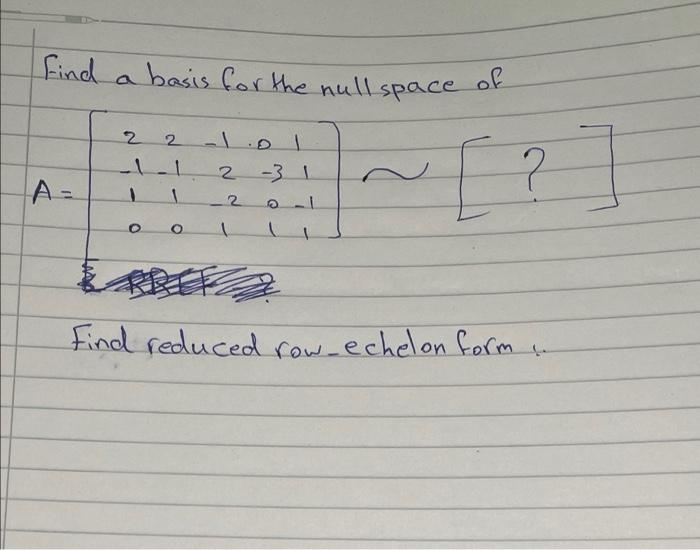 Find a basis for the null space of
2 2 -1 0 1
-1 -1 2 -3 1
A = 1 1 -2 0 -1 ~ [ ? ]
0 0 1 1 1
Find reduced row-echelon form